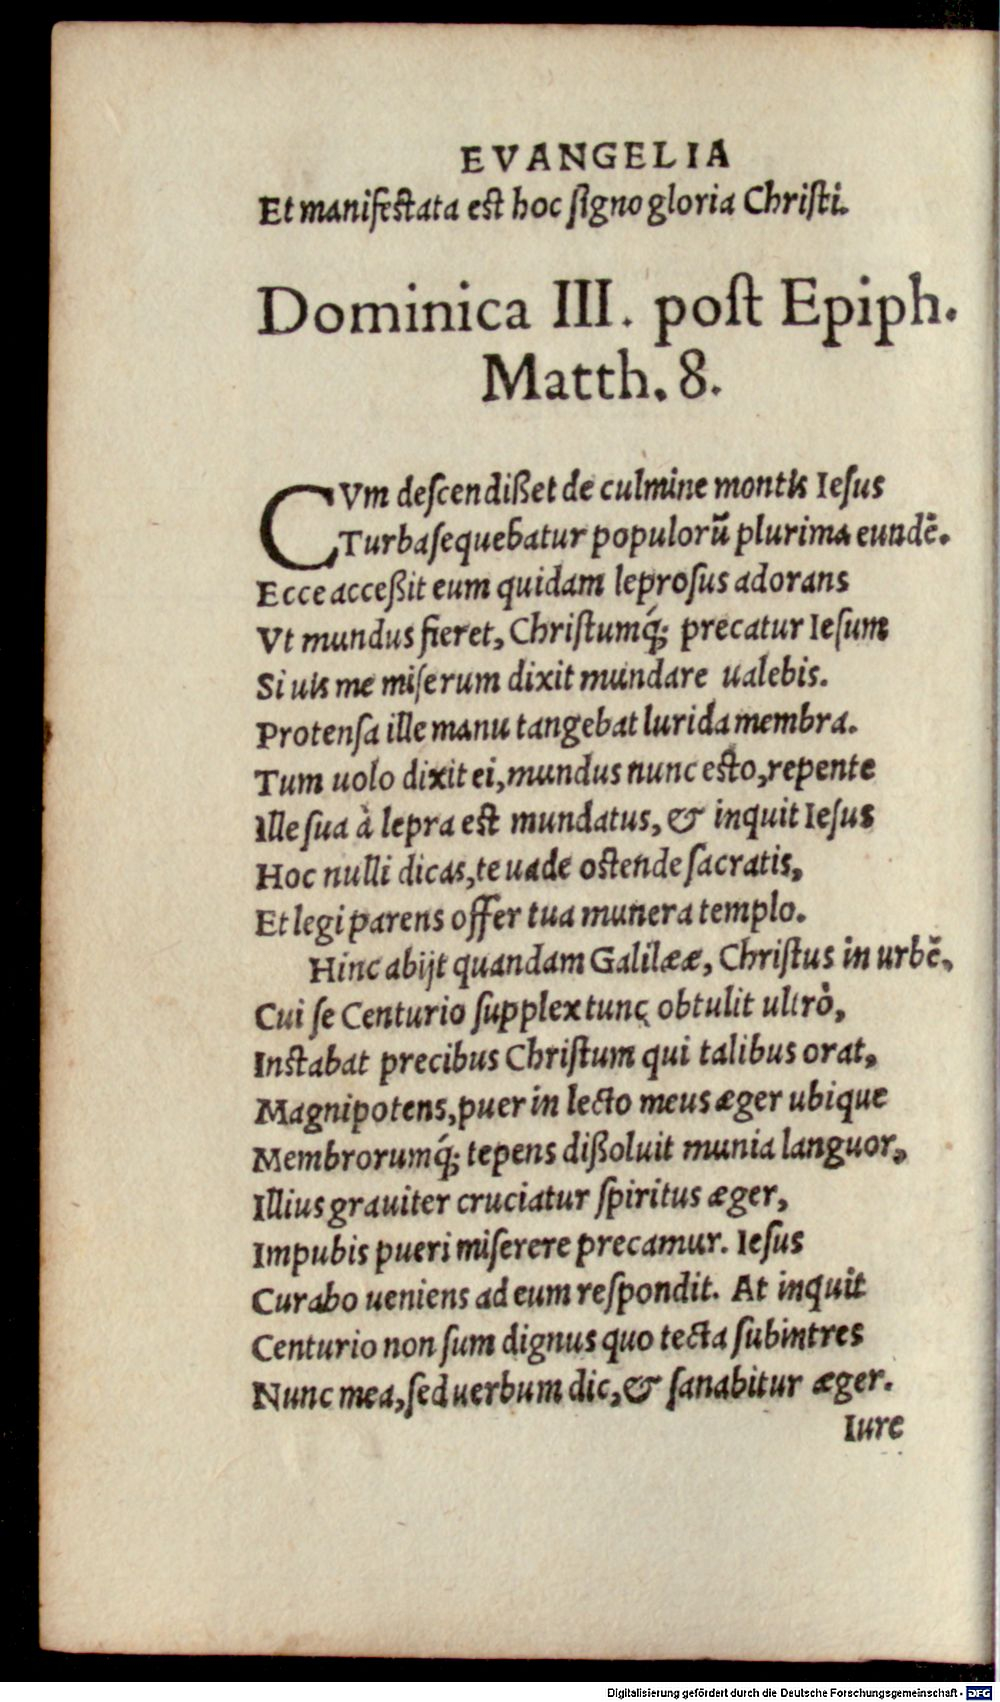 EVANGELIA
Et manifestata est hoc ſigno gloria Chriſti.
Dominica III. poſt Epiph.
Matth. 8.
CVm deſcendißet de culmine montis Ieſus
Turba ſequebatur populorũ plurima eundẽ.
Ecce acceßit eum quidam leproſus adorans
Vt mundus fieret, Chriſtumq́; precatur Ieſum
Si uis me miſerum dixit mundare ualebis.
Protenſa ille manu tangebat lurida membra.
Tum uolo dixit ei, mundus nunc esto, repente
Ille ſua à lepra est mundatus, & inquit Ieſus
Hoc nulli dicas, te uade ostende ſacratis,
Et legi parens offer tua munera templo.
Hinc abijt quandam Galilææ, Chriſtus in urbẽ,
Cui ſe Centurio ſupplex tunc obtulit ultrò,
Instabat precibus Chriſtum qui talibus orat,
Magnipotens, puer in lecto meus æger ubique
Membrorumq́; tepens dißoluit munia languor,
Illius grauiter cruciatur ſpiritus æger,
Impubis pueri miſerere precamur. Ieſus
Curabo ueniens ad eum reſpondit. At inquit
Centurio non ſum dignus quo tecta ſubintres
Nunc mea, ſed uerbum dic, & ſanabitur æger.
Iure
Digitalisierung gefördert durch die Deutsche Forschungsgemeinschaft - DFG